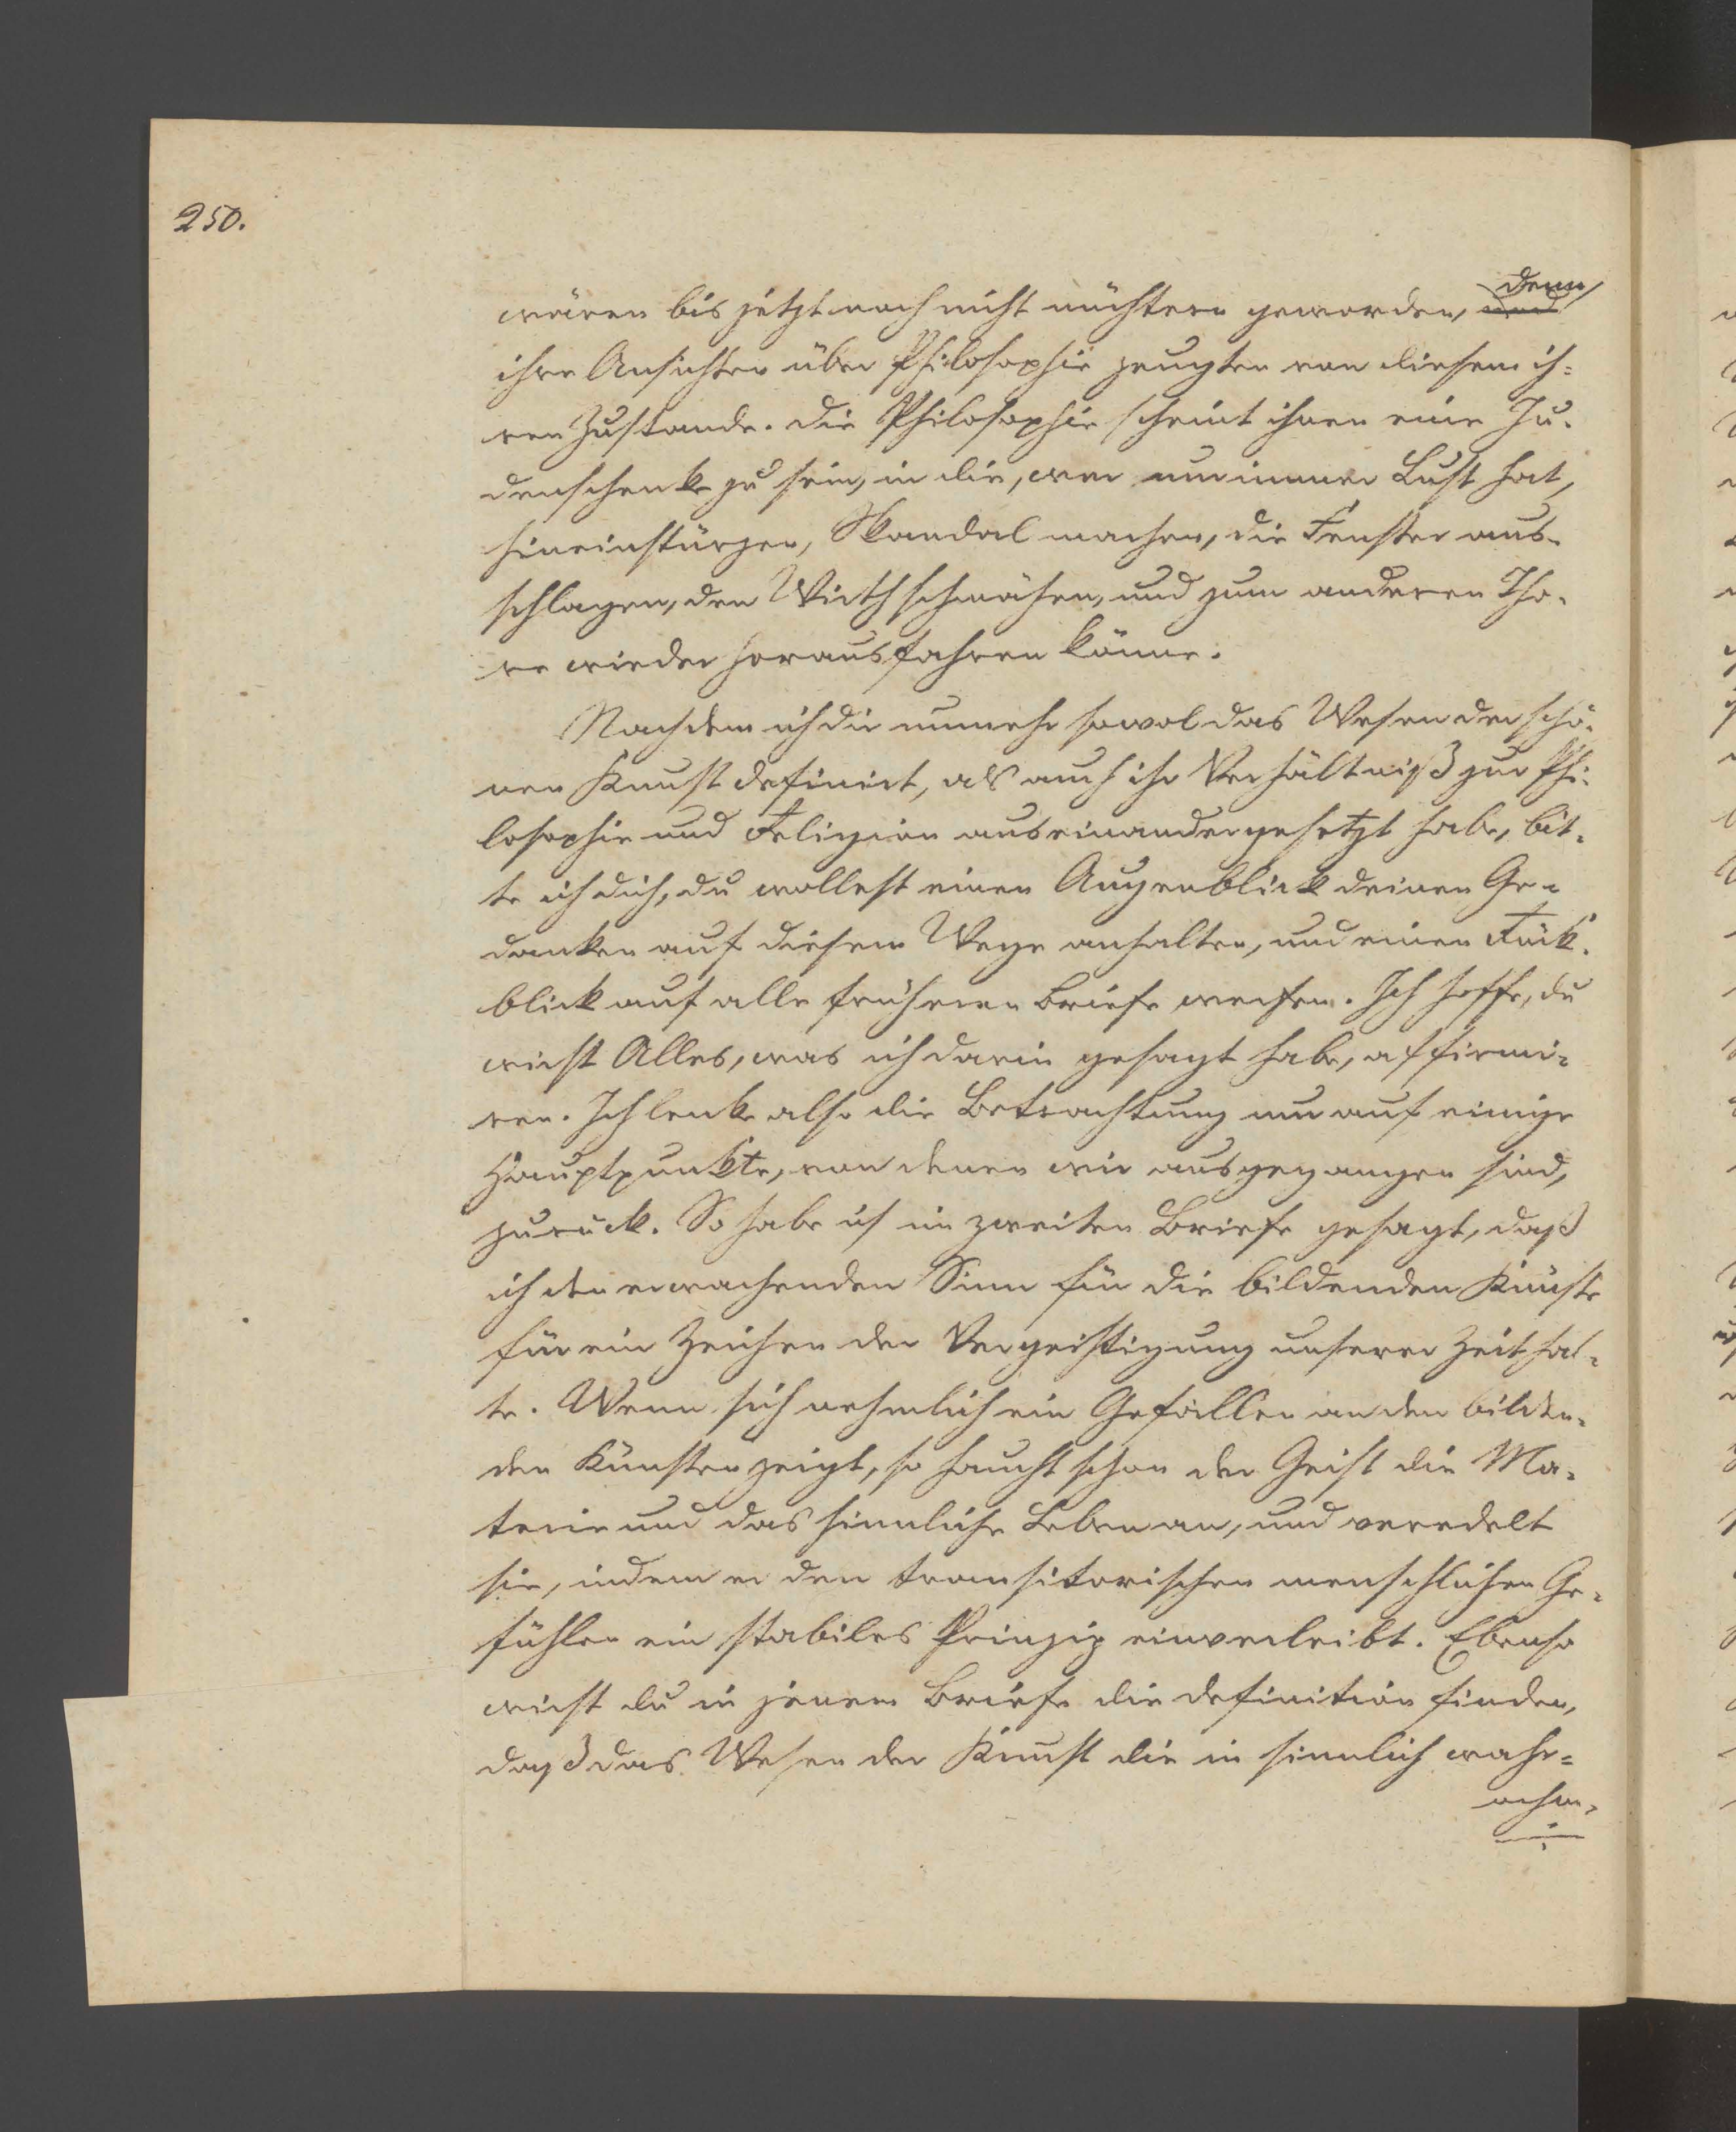 250.
wären bis jetzt noch nicht nüchtern geworden, denn
ihre Ansichten über Philosophie zeugten von diesem ih-
ren Zustande. Die Philosophie scheint ihnen eine Ju-
denschenke zu sein, in die, wer nur immer Lust hat,
hineinstürzen, Skandal machen, die Fenster aus-
schlagen, den Wirth schmähen, und zum anderen Tho-
re wieder herausfahren könne.
Nachdem ich dir nunmehr sowol das Wesen der schö-
nen Kunst definirt, als auch ihr Verhältniß zur Phi-
losophie und Religion auseinandergesetzt habe, bit-
te ich dich, du wollest einen Augenblick deinen Ge-
danken auf diesem Wege anhalten, und einen Rück-
blick auf alle früheren Briefe werfen. Ich hoffe, du
wirst Alles, was ich darin gesagt habe, affirmi-
ren. Ich lenke also die Betrachtung nur auf einige
Hauptpunkte, von denen wir ausgegangen sind,
zurück. So habe ich im zweiten Briefe gesagt, daß
ich den erwachenden Sinn für die bildenden Künste
für ein Zeichen der Vergeistigung unserer Zeit hal-
te. Wenn sich nehmlich ein Gefallen an den bilden-
den Künsten zeigt, so haucht schon der Geist die Ma-
terie und das sinnliche Leben an, und veredelt
sie, indem er den transitorischen menschlichen Ge-
fühlen ein stabiles Prinzip einverleibt. Ebenso
wirst du in jenem Briefe die Definition finden,
daß das Wesen der Kunst die in sinnlich wahr-
nehm-